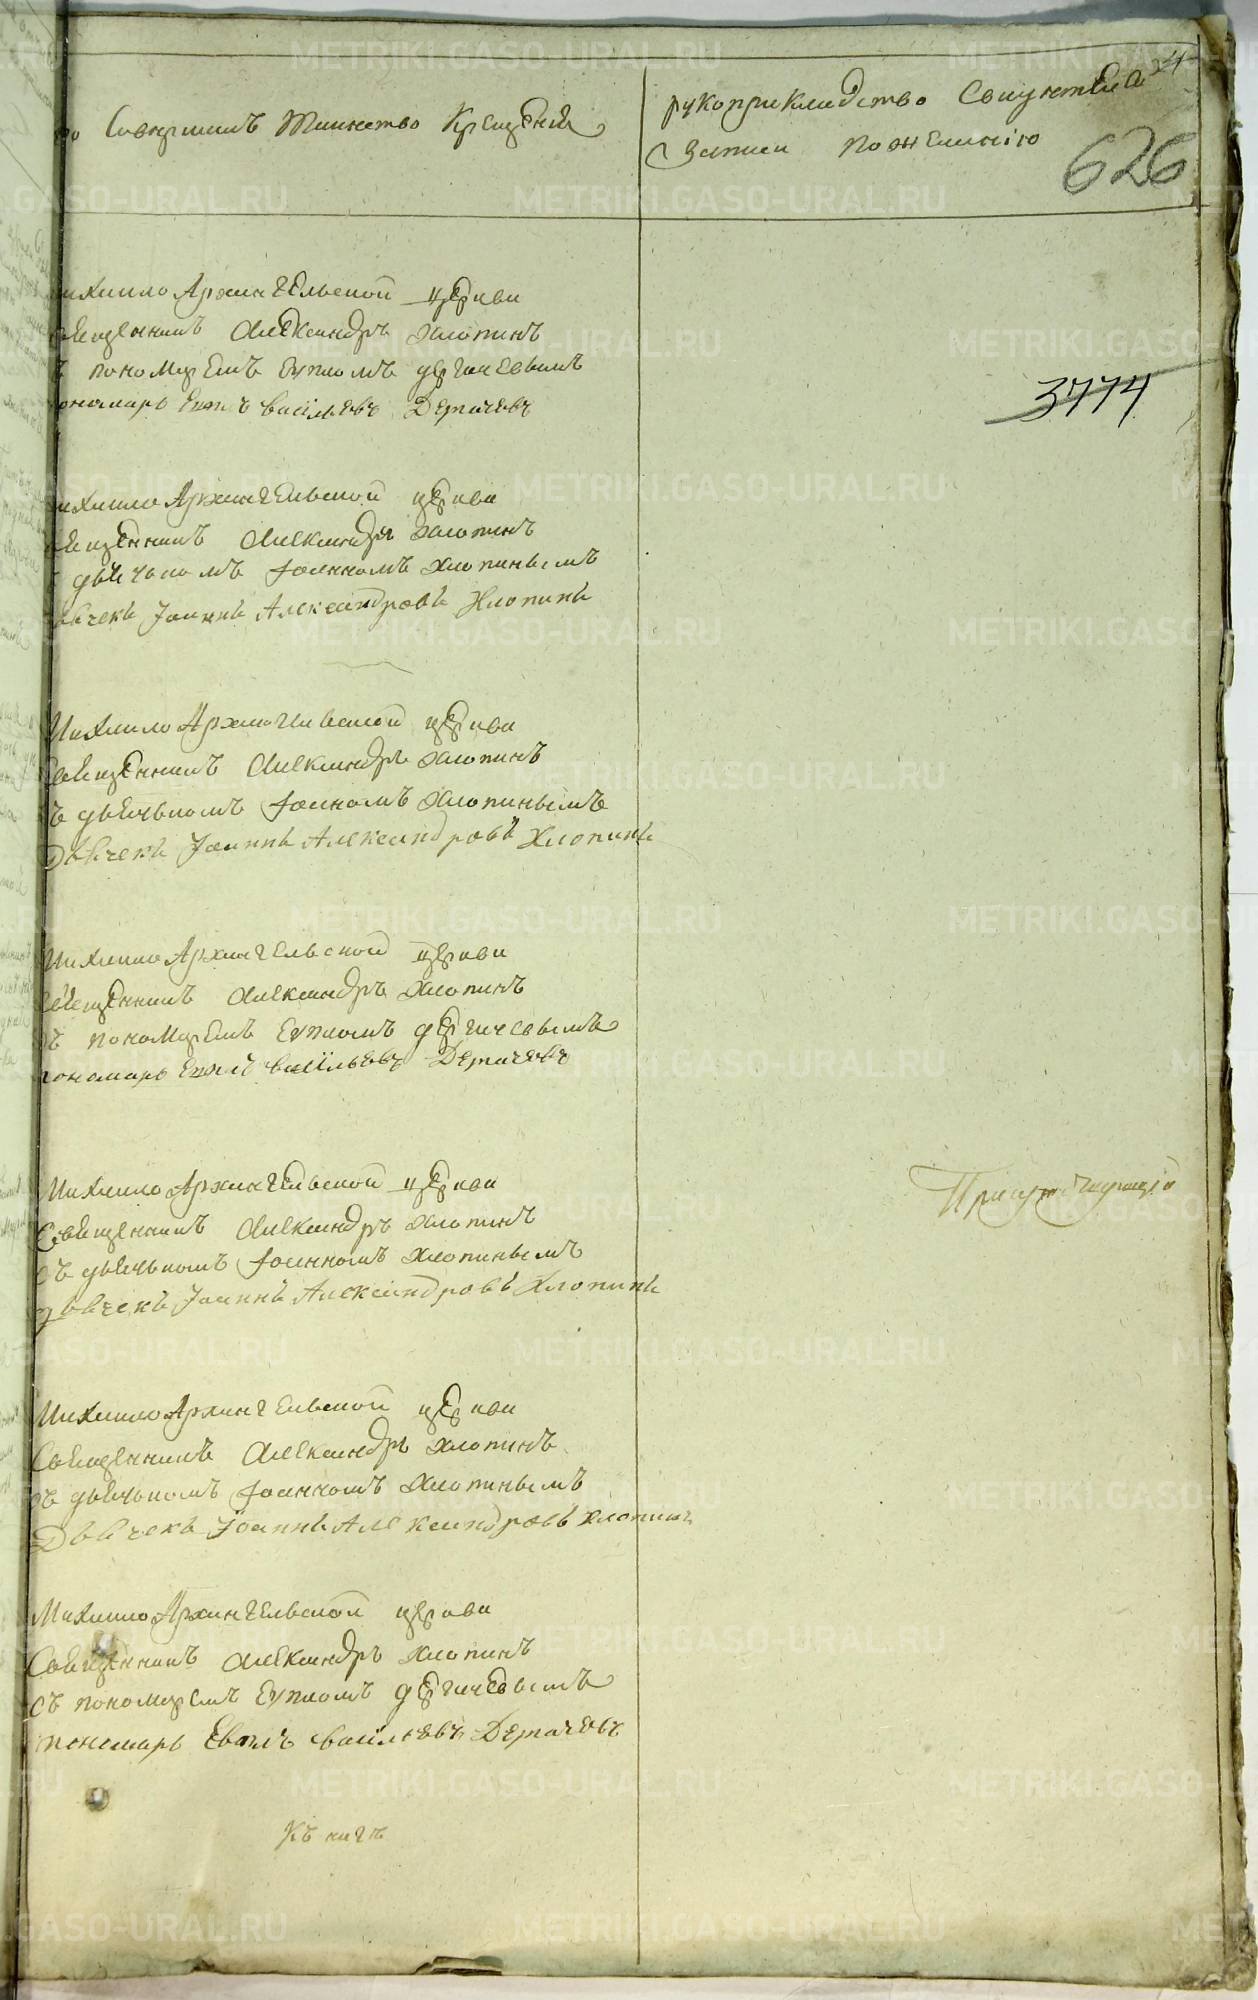 Совершилъ Таинство Крещения
рукоприкладство Свидетелей
записи по желанию
626
Михаило Архангельской церкви
священникъ Александръ Хлопинъ
съ пономаремъ Еупломъ дергачевымъ
пономарь Евплъ васильевъ Дергачевъ
3774
Михаило Архангельской церкви
священникъ Александръ Хлопинъ
дьячькомъ Іоанномъ Хлопинымъ
дьячекъ Іоаннъ Александровъ Хлопинъ
Михаило Архангельской церкви
священникъ Александръ Хлопинъ
съ дьячькомъ Іоанномъ Хлопинымъ
Дьячекъ Іоаннъ Александровъ Хлопинъ
Михаило Архангельской церкви
священникъ Александръ Хлопинъ
съ пономаремъ Еупломъ дергачевымъ
пономарь Евплъ васильевъ Дергачевъ
Михаило Архангельской церкви
Священникъ Александръ Хлопинъ
съ дьячькомъ Іоанномъ Хлопинымъ
дьячекъ Іоаннъ Александровъ Хлопинъ
Михаило Архангельской церкви
Священникъ Александръ Хлопинъ
съ дьячькомъ Іоанномъ Хлопинымъ
Дьячекъ Іоаннъ Александровъ Хлопинъ
Михаило Архангельской церкви
Священникъ Александръ Хлопинъ
съ пономаремъ Еупломъ дергачевымъ
пономарь Евплъ васильевъ Дергачевъ
Къ
METRIKI.GASO-URAL.RU